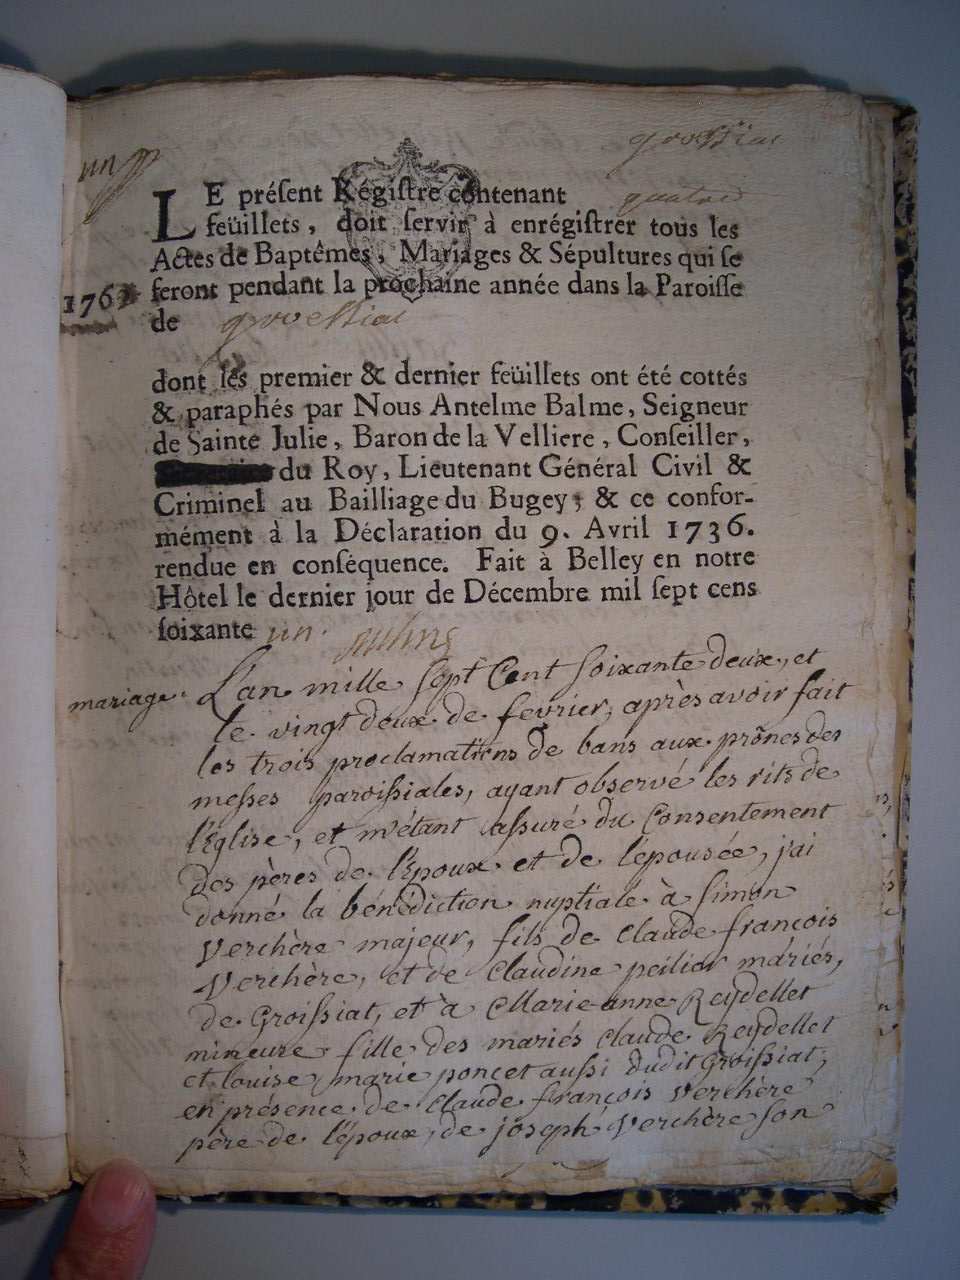 un
grossiac
LE préſent Régiſtre contenant quatre
feüillets, doit ſervir à enrégiſtrer tous les
Actes de Baptêmes, Mariages & Sépultures qui ſe
ſeront pendant la prochaine année dans la Paroiſſe
176
de groissiac
dont les premier & dernier feüillets ont été cottés
& paraphés par Nous Antelme Balme, Seigneur
de Sainte Julie, Baron de la Velliere, Conſeiller,
du Roy, Lieutenant Général Civil &
Criminel au Bailliage du Bugey; & ce confor-
mément à la Déclaration du 9. Avril 1736.
rendue en conſéquence. Fait à Belley en notre
Hôtel le dernier jour de Décembre mil ſept cens
ſoixante un.
mariage. L'an mille sept Cent soixante deux, et
le vingt deux de fevrier, après avoir fait
les trois proclamations de bans aux prônes des
messes paroissiales, ayant observé les rits de
l'Eglise, et m'étant assuré du Consentement
des pères de l'Epoux et de l'épousée, j'ai
donné la bénédiction nuptiale à Simon
Verchère majeur, fils de Claude françois
Verchère, et de Claudine peilior mariés,
de Groissiat, et à Marie-anne Reydellet
mineure fille des mariés Claude Reydellet
et louise marie poncet aussi dudit Groissiat,
en présence de Claude françois Verchère
père de l'époux, de joseph Verchère son